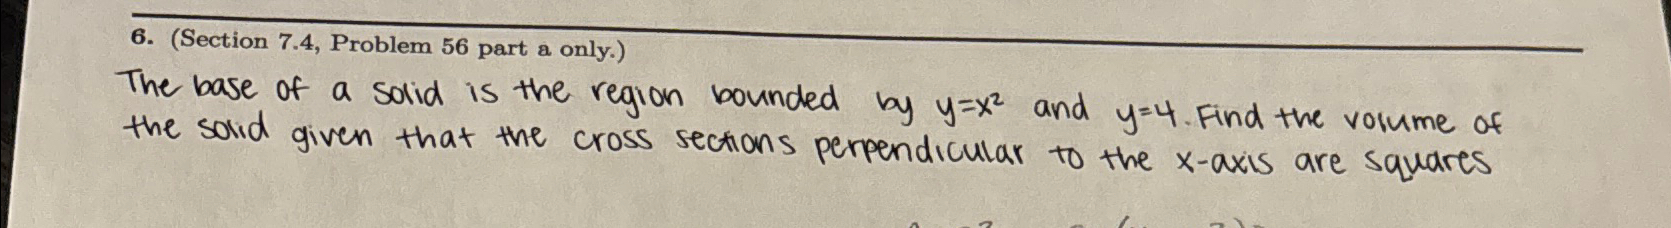 6. (Section 7.4, Problem 56 part a only.)
The base of a solid is the region bounded by y=x² and y=4. Find the volume of
the solid given that the cross sections perpendicular to the x-axis are squares